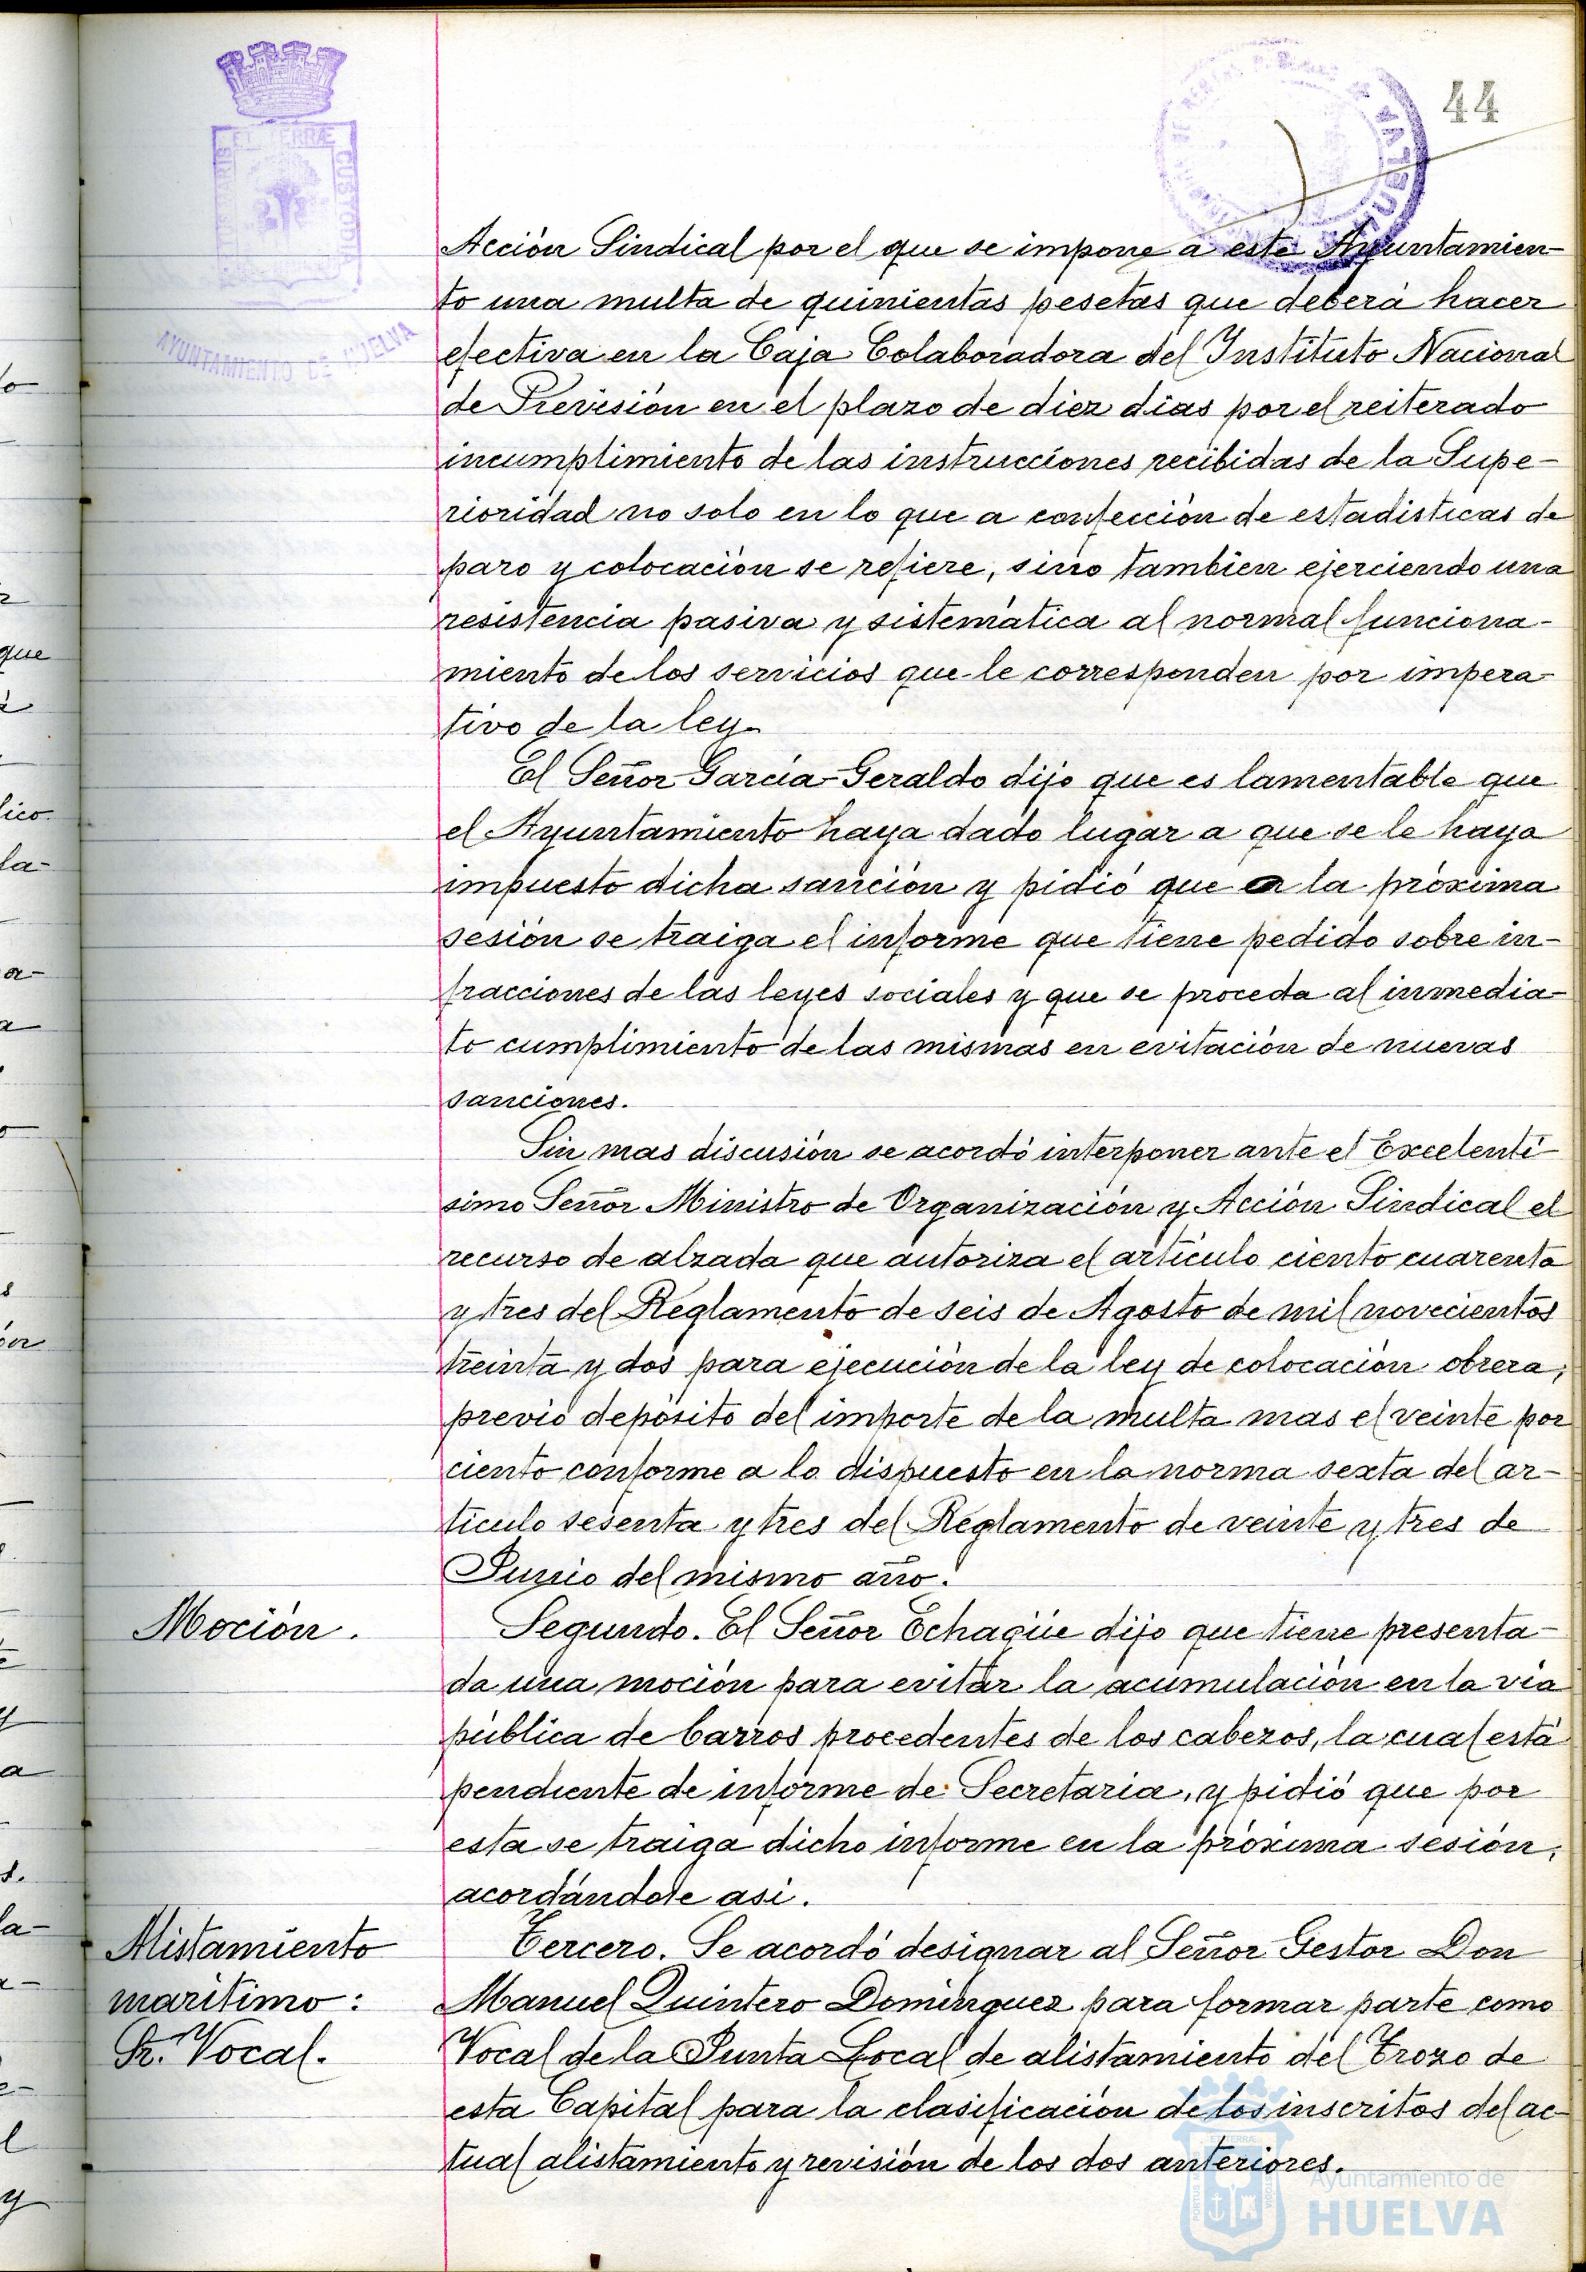 44
AYUNTAMIENTO DE HUELVA
Acción Sindical por el que se impone a este Ayuntamien-
to una multa de quinientas pesetas que deberá hacer
efectiva en la Caja Colaboradora del Instituto Nacional
de Previsión en el plazo de diez dias por el reiterado
incumplimiento de las instrucciones recibidas de la Supe-
rioridad no solo en lo que a confección de estadisticas de
paro y colocación se refiere, sino tambien ejerciendo una
resistencia pasiva y sistemática al normal funciona-
miento de los servicios que le corresponden por impera-
tivo de la ley.
El Señor García-Geraldo dijo que es lamentable que
el Ayuntamiento haya dado lugar a que se le haya
impuesto dicha sanción y pidió que a la próxima
sesión se traiga el informe que tiene pedido sobre in-
fracciones de las leyes sociales y que se proceda al inmedia-
to cumplimiento de las mismas en evitación de nuevas
sanciones.
Sin mas discusión se acordó interponer ante el Excelentí-
simo Señor Ministro de Organización y Acción Sindical el
recurso de alzada que autoriza el artículo ciento cuarenta
y tres del Reglamento de seis de Agosto de mil novecientos
treinta y dos para ejecución de la ley de colocación obrera,
previo depósito del importe de la multa mas el veinte por
ciento conforme a lo dispuesto en la norma sexta del ar-
tículo sesenta y tres del Reglamento de veinte y tres de
Junio del mismo año.
Moción.
Segundo. El Señor Echagüe dijo que tiene presenta-
da una moción para evitar la acumulación en la via
pública de barros procedentes de los cabezos, la cual está
pendiente de informe de Secretaria, y pidió que por
esta se traiga dicho informe en la próxima sesión,
acordándose asi.
Alistamiento
marítimo:
Sr. Vocal.
Tercero. Se acordó designar al Señor Gestor Don
Manuel Quintero Dominguez para formar parte como
Vocal de la Junta Local de alistamiento del Trozo de
esta Capital para la clasificación de los inscritos del ac-
tual alistamiento y revisión de los dos anteriores.
Ayuntamiento de
HUELVA